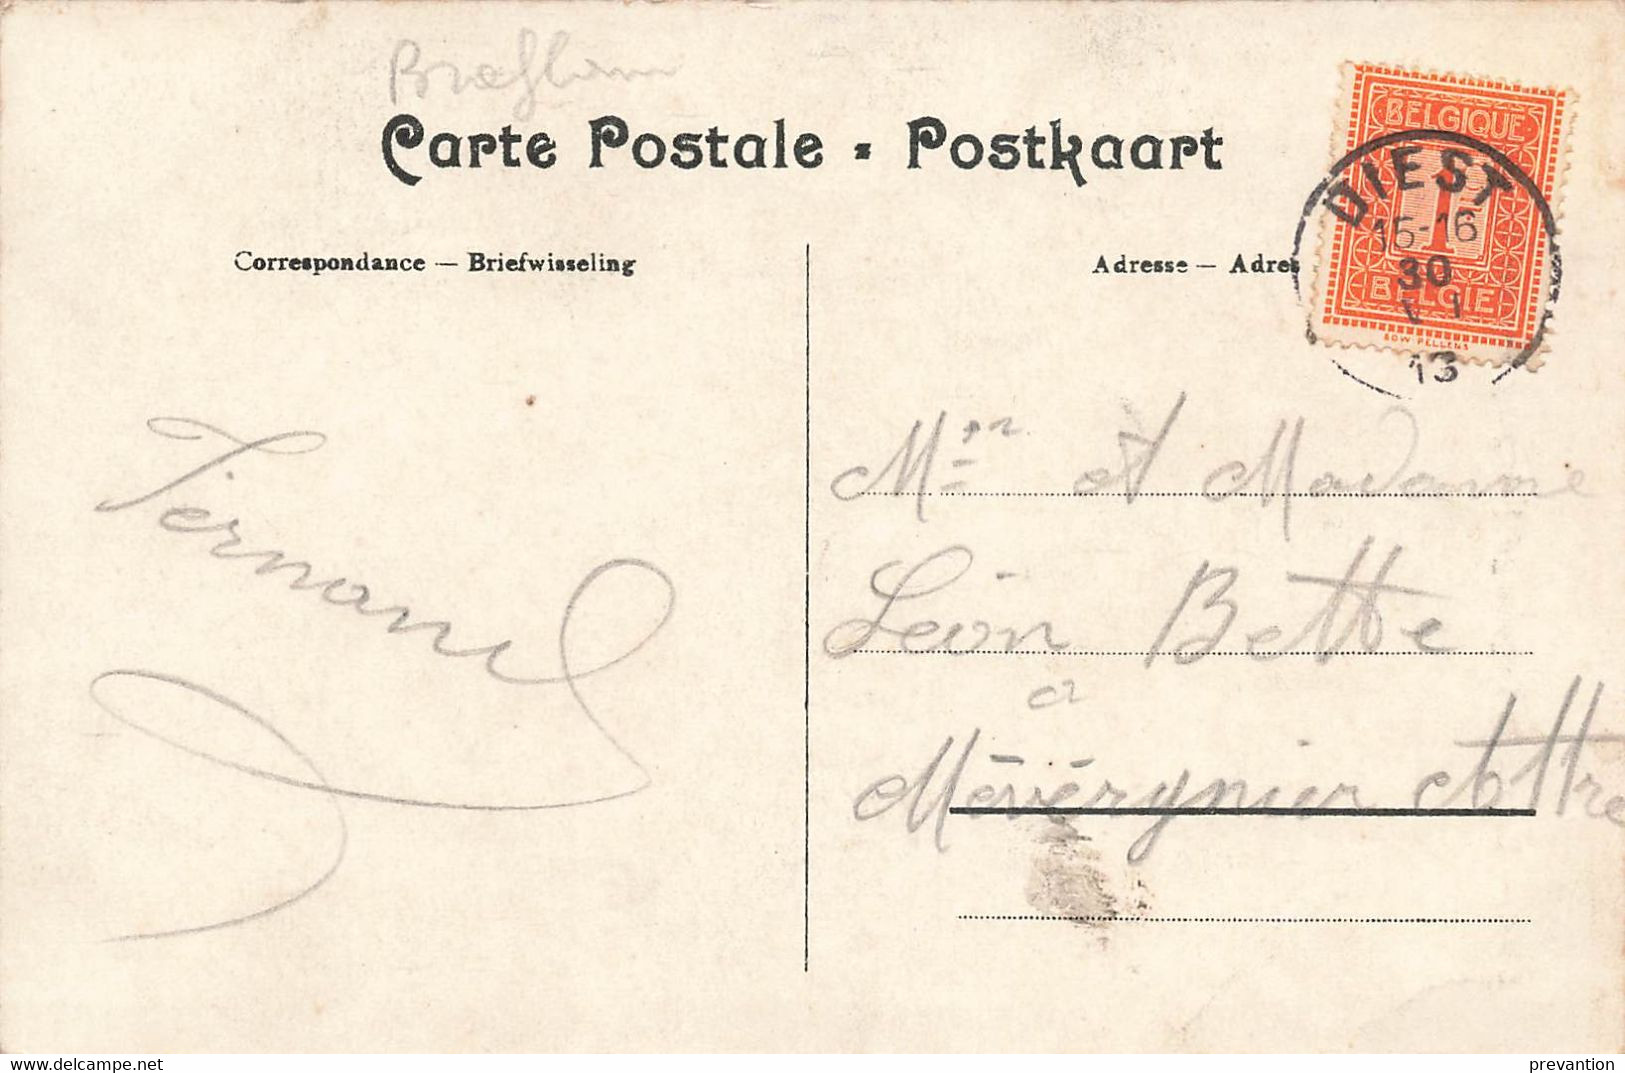 Carte Postale - Postkaart
Correspondance — Briefwisseling
Adresse — Adres
BELGIQUE
1
BELGIE
SOW PELLENS
DIEST
15-16
30
VI
13
Fernand
Mr et Madame
Léon Bette
à
Mévérgnier Attre
delcampe.net
prevantion